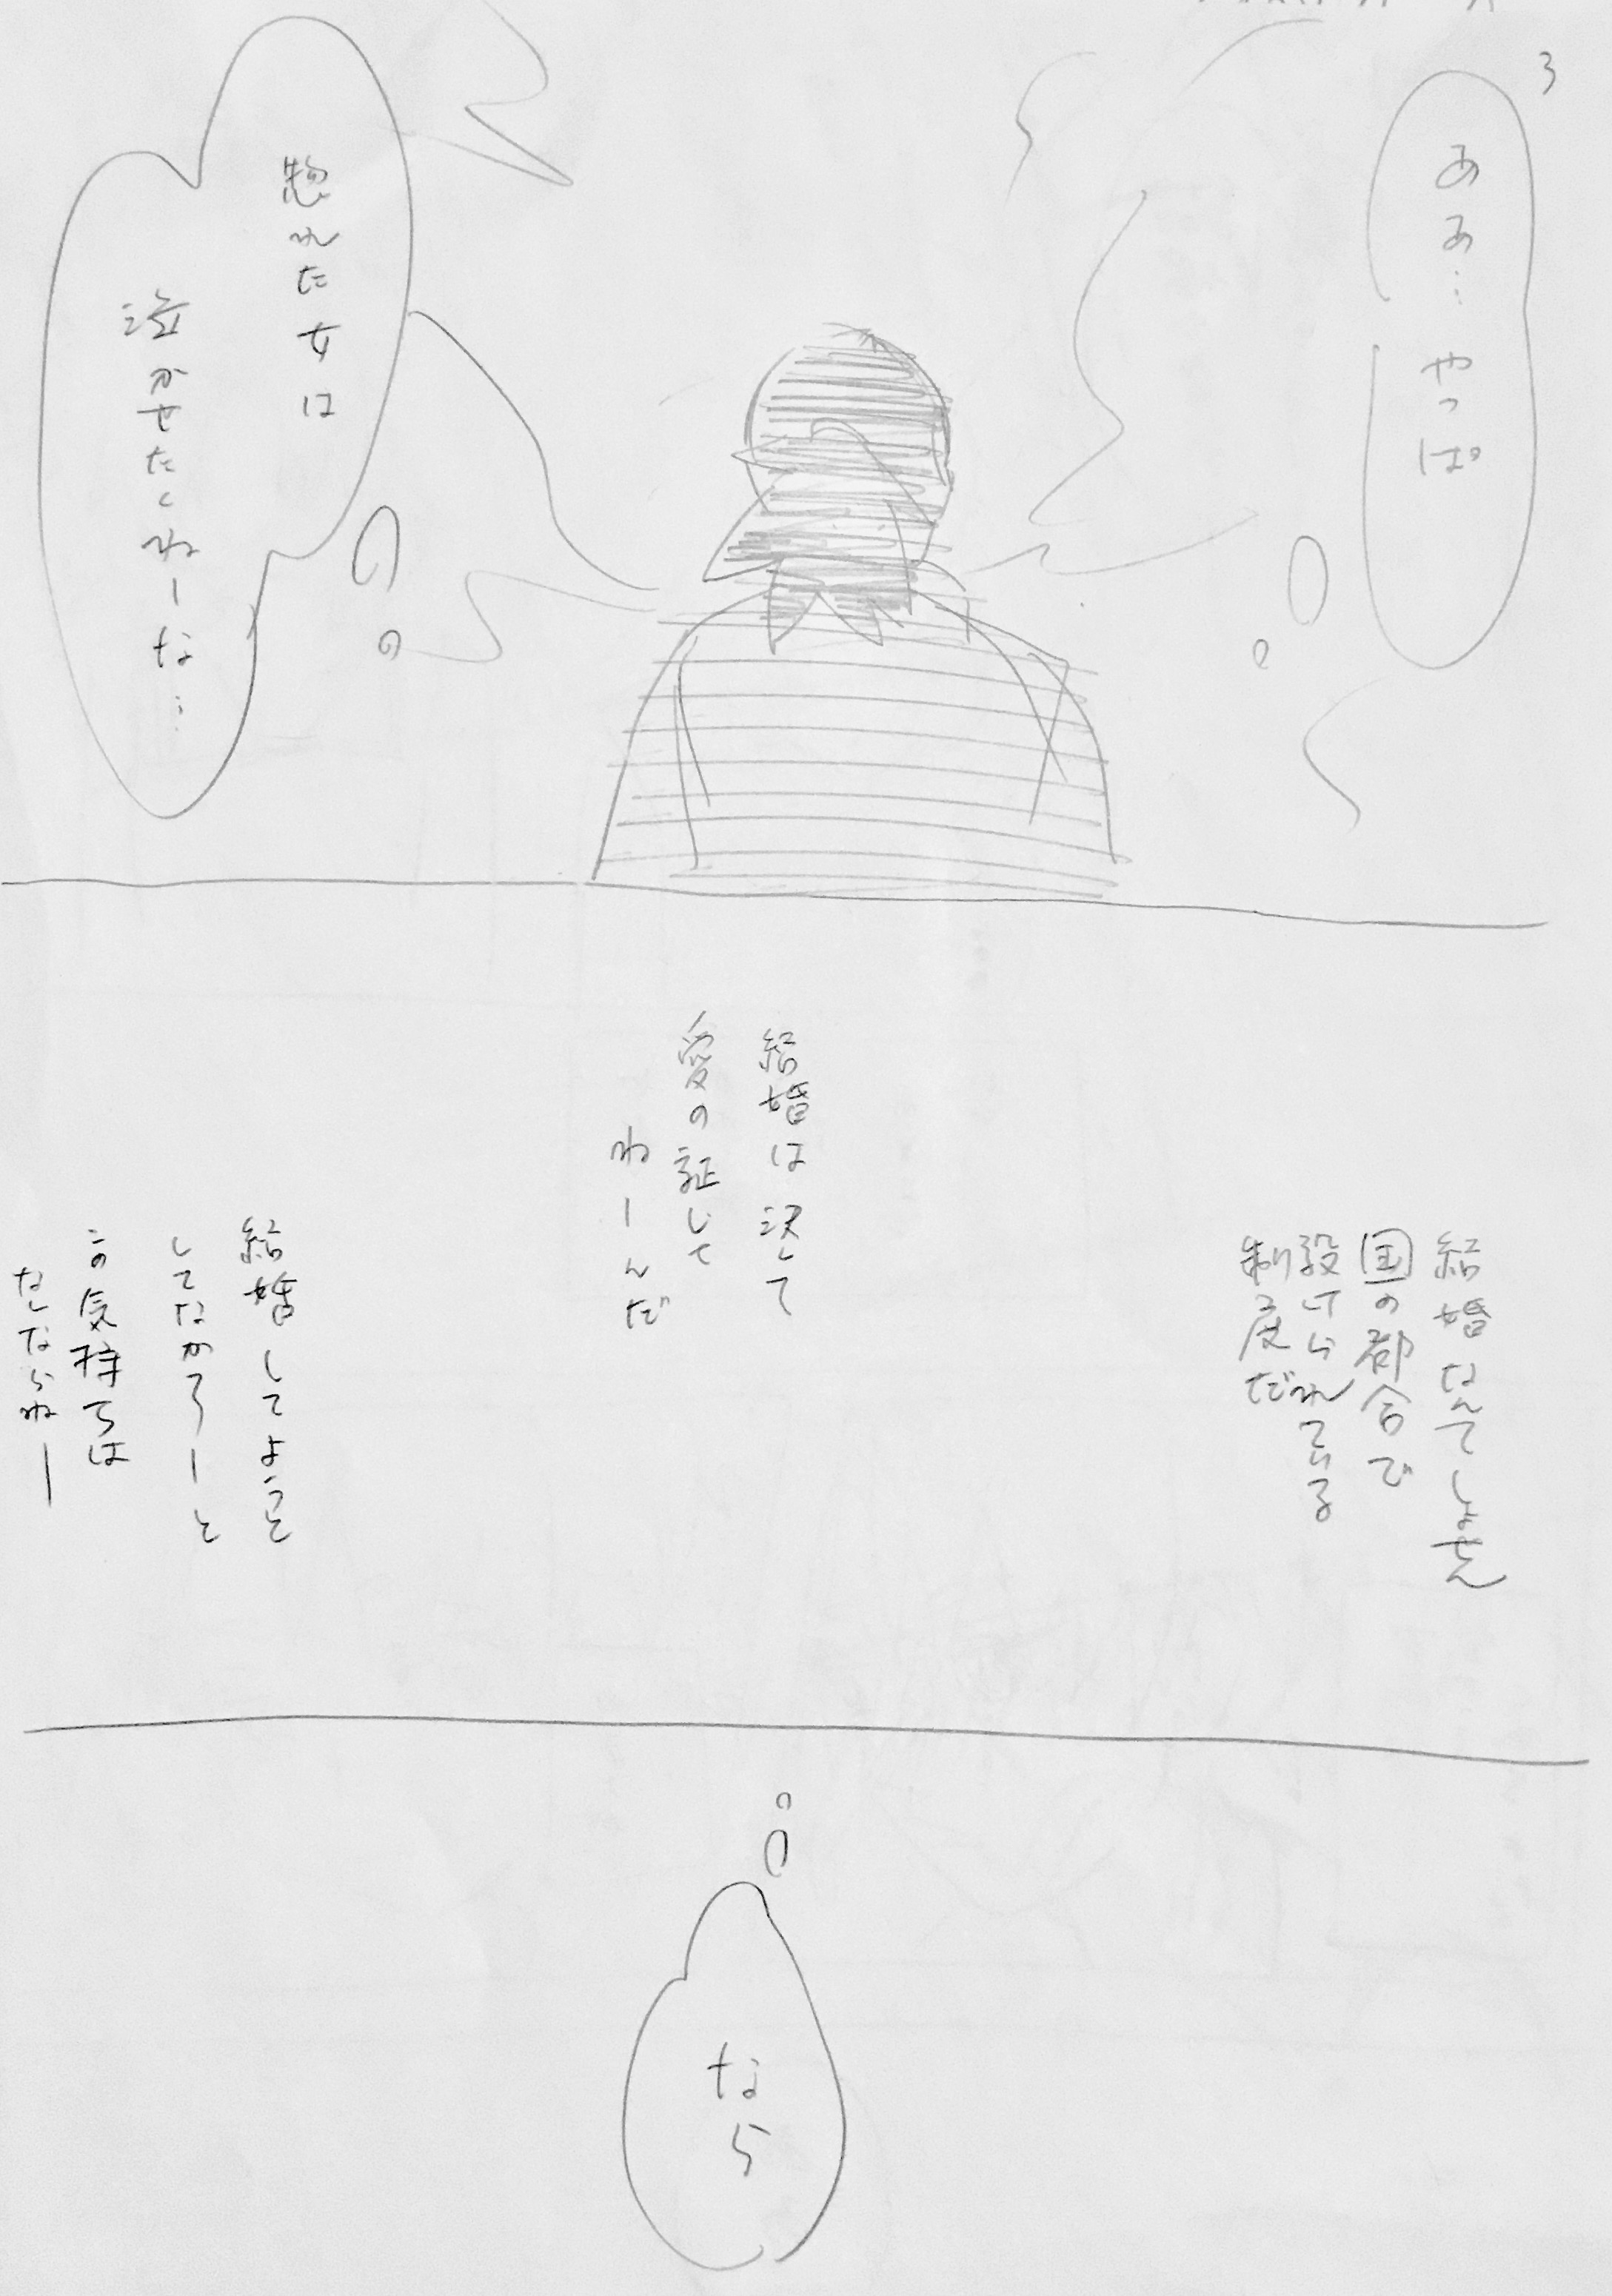 3
ああ…やっぱ
惚れた女は
泣かせたくねーな…
結婚なんてしょせん
国の都合で
設けられている
制度だ
結婚は決して
愛の証じゃ
ねーんだ
結婚してよーと
してなかろーと
この気持ちは
なくならねー
なら